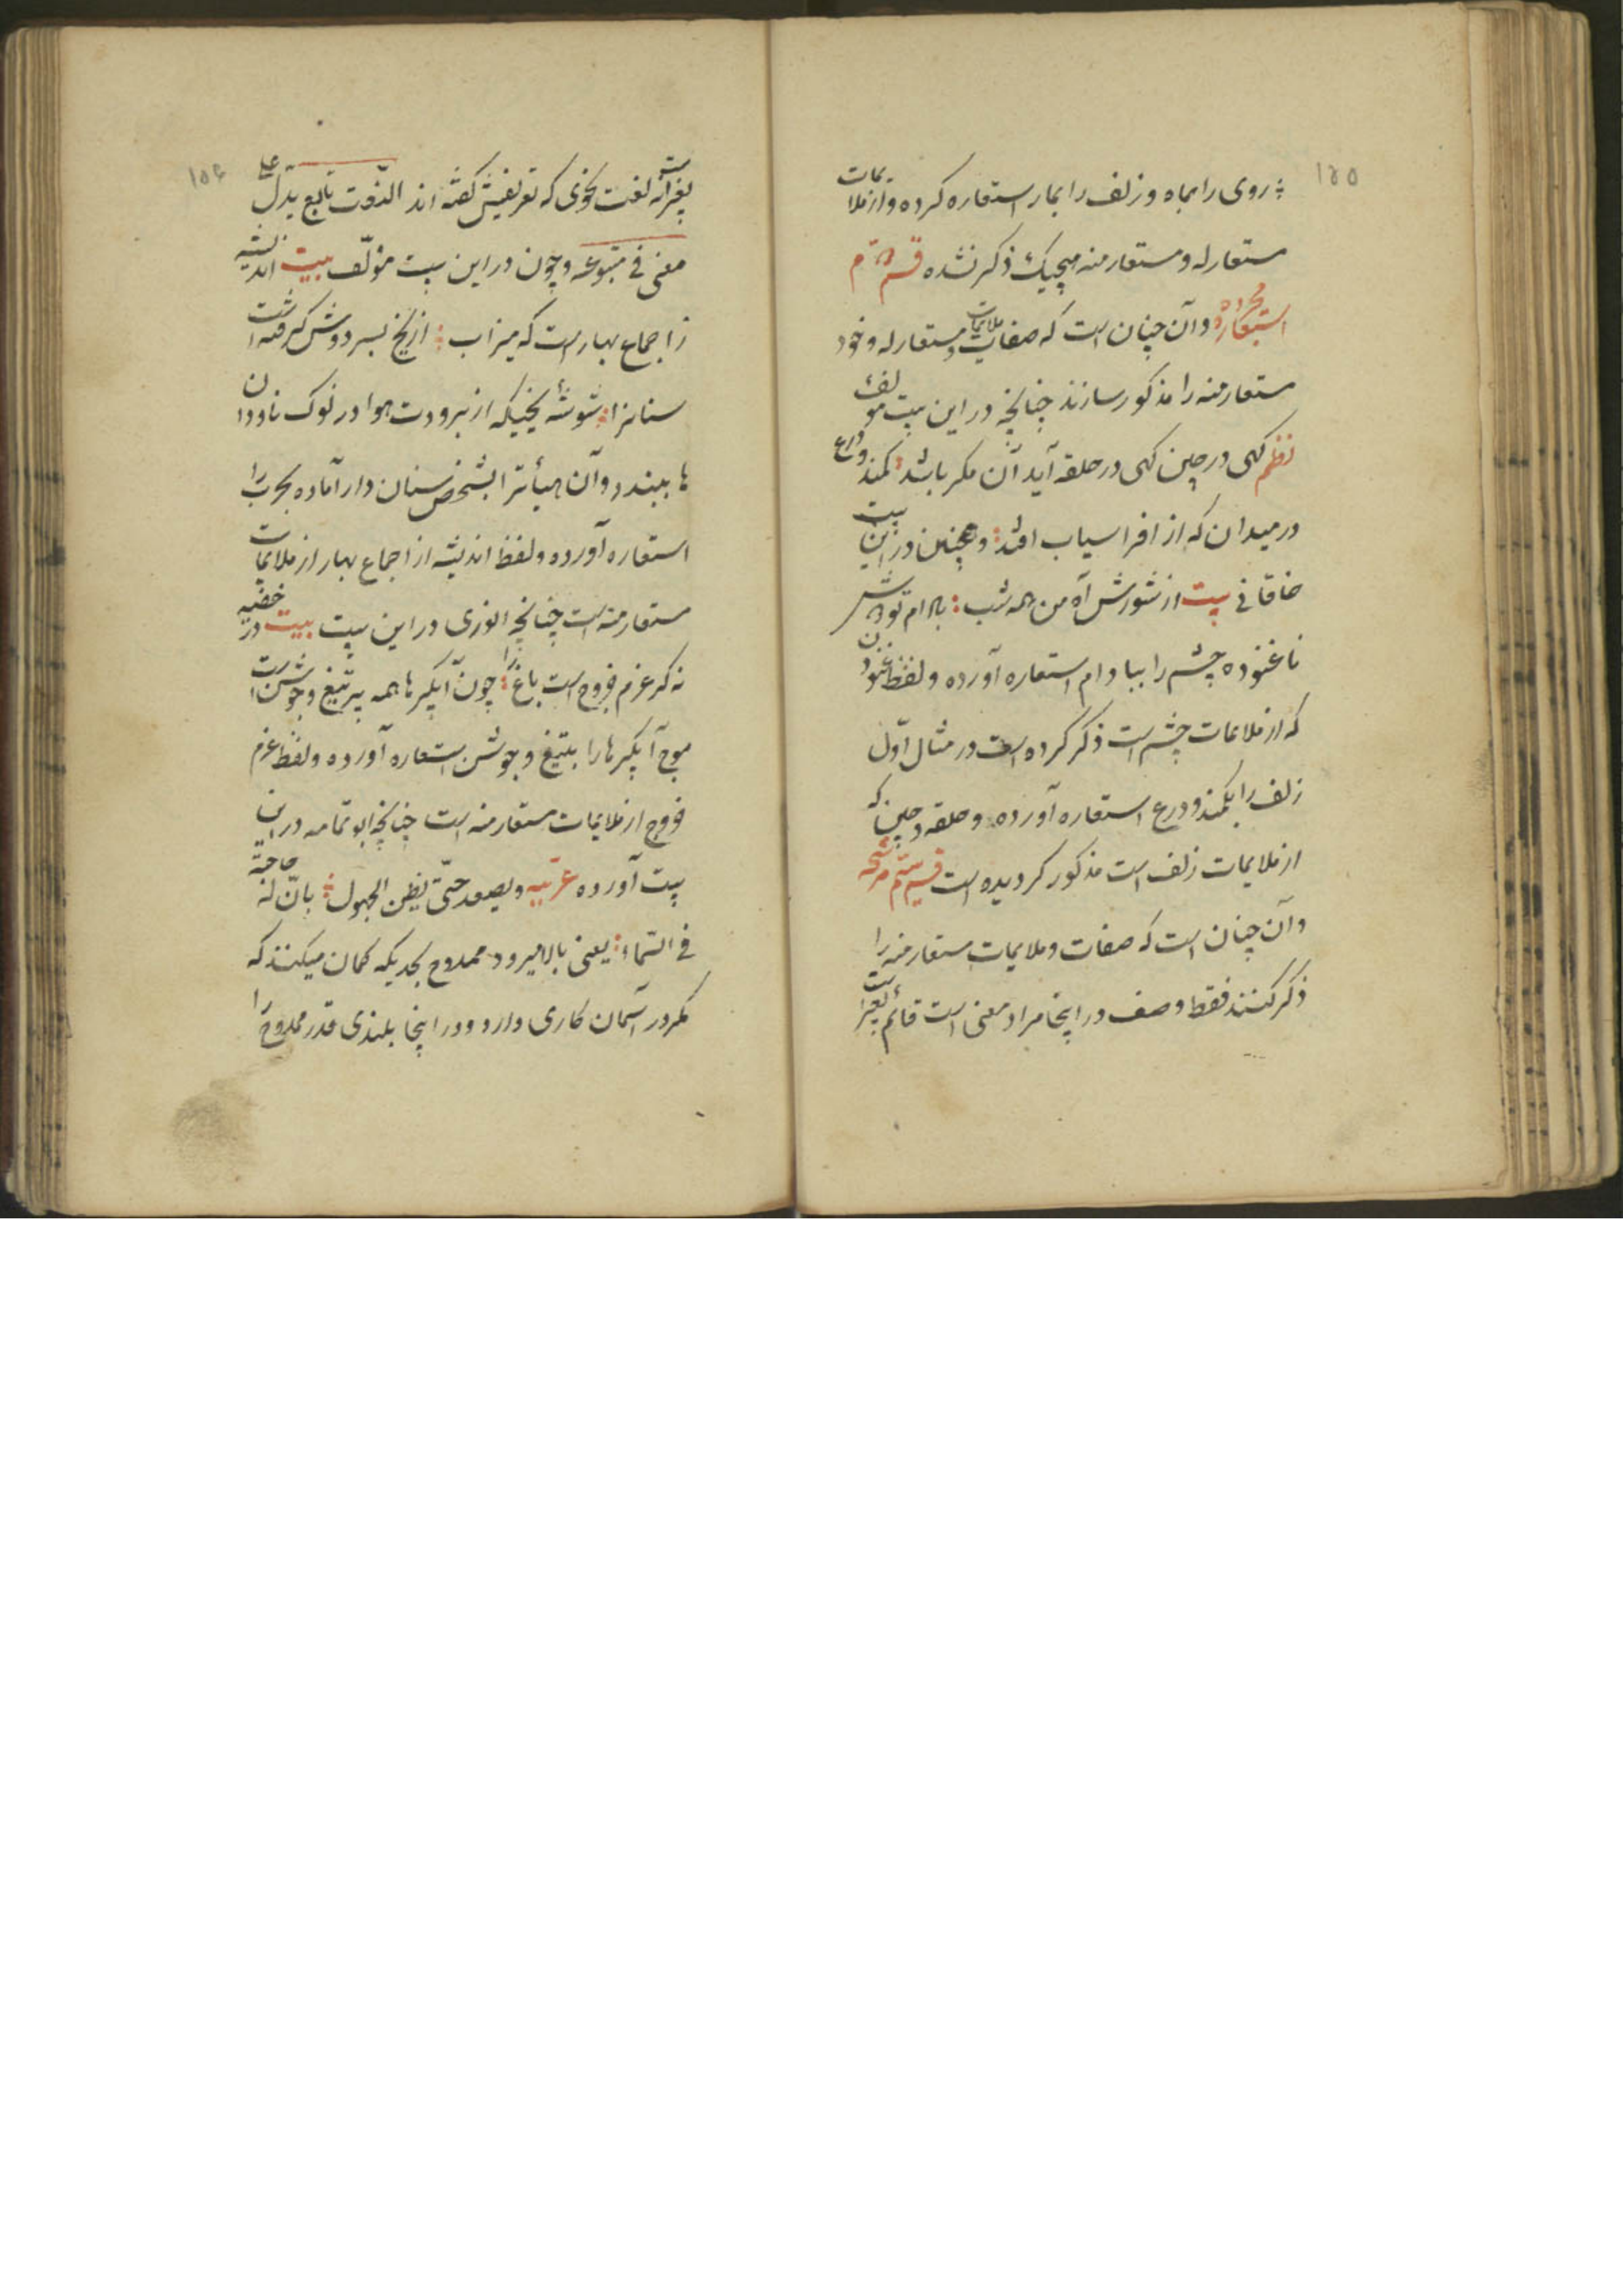 ۱۵۵
روی را بماه و زلف را بمار استعاره کرده و از ملایمات
مستعار له و مستعار منه هیچیک ذکر نشده قسم دوّم
استعارهٔ مجرده و آن چنان است که صفات و ملایمات مستعار له و خود
مستعار منه را مذکور سازند چنانچه در این بیت مولف
نظم کهی در چین کهی در حلقه آید آن مکر باشد کمند و درع
در میدان که از افراسیاب افتد و همچنین در این بیت
خاقانی بیت از شورش آه من همه شب بادام تو دوش
ناغنوده چشم را ببادام استعاره آورده و لفظ غنودن
که از ملایمات چشم است ذکر کرده است در مثال اوّل
زلف را بکمند و درع استعاره آورده و حلقه و چین که
از ملایمات زلف است مذکور کردیده است قسم سیّم مرشحه
و آن چنان است که صفات و ملایمات مستعار منه را
ذکر کنند فقط وصف در اینجا مراد معنی است قائم بغیر است
۱۵۶
بغیر نه لغت نحوی که تعریفش کفته اند النّعت تابع یدّل علی
معنی فی متبوعه و چون در این بیت مؤلّف بیت اندیشه
ز اجماع بهار است که میزاب از یخ بسر دوش کرفته است
سنانرا شوشهٔ یخیکه از برودت هوا در نوک ناودان
ها ببندد و آن هیأترا بشخص سنان دار آماده بحرب را
استعاره آورده و لفظ اندیشه از اجماع بهار از ملایمات
مستعار منه است چنانچه انوری در این بیت بیت در خفیه
نه کر عزم خروج است باغ را چون آبکیرها همه پر تیغ و جوشن است
موج آبکیرها را بتیغ و جوشن استعاره آورده و لفظ عزم
خروج از ملایمات مستعار منه است چنانچه ابو تمامه در این
بیت آورده عربیه و یصعد حتّی یظن الجهول بانّ له حاجة
فی السّماء یعنی بالا میرود ممدوح بحدیکه کمان میکنند که
مکر در آسمان کاری دارد و در اینجا بلندی قدر ممدوح را